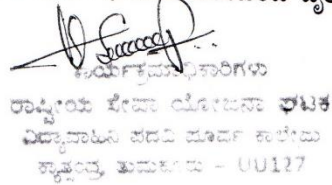 ಕಾರ್ಯಕ್ರಮಾಧಿಕಾರಿಗಳು
ರಾಷ್ಟ್ರೀಯ ಸೇವಾ ಯೋಜನಾ ಘಟಕ
ವಿದ್ಯಾವಾಹಿನಿ ಪದವಿ ಪೂರ್ವ ಕಾಲೇಜು
ಕ್ಯಾತ್ಸಂದ್ರ, ತುಮಕೂರು - UU127